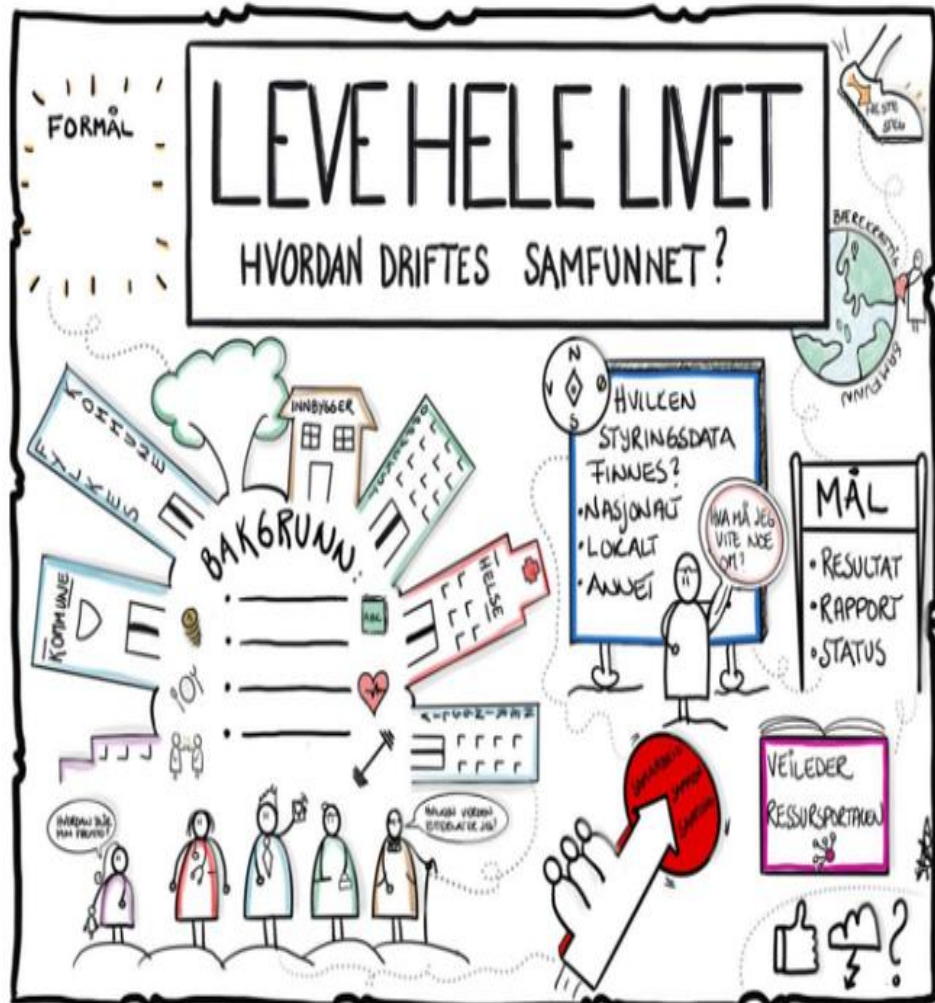 FORMÅL
LEVE HELE LIVET
HVORDAN DRIFTES SAMFUNNET?
NESTE
STEG
BÆREKRAFTIG
SAMFUNN
FYLKES
KOMMUNE
INNBYGGER
KOMMUNE
HELSE
BAKGRUNN:
ABC
N
V
Ø
S
HVILKEN
STYRINGSDATA
FINNES?
•NASJONALT
•LOKALT
•ANNET
HVA MÅ JEG
VITE NOE
OM?
MÅL
•RESULTAT
•RAPPORT
•STATUS
VEILEDER
RESSURSPORTALEN
HVORDAN BLIR
MIN FREMTID?
HVILKEN VERDEN
ETTERLATER JEG?
?